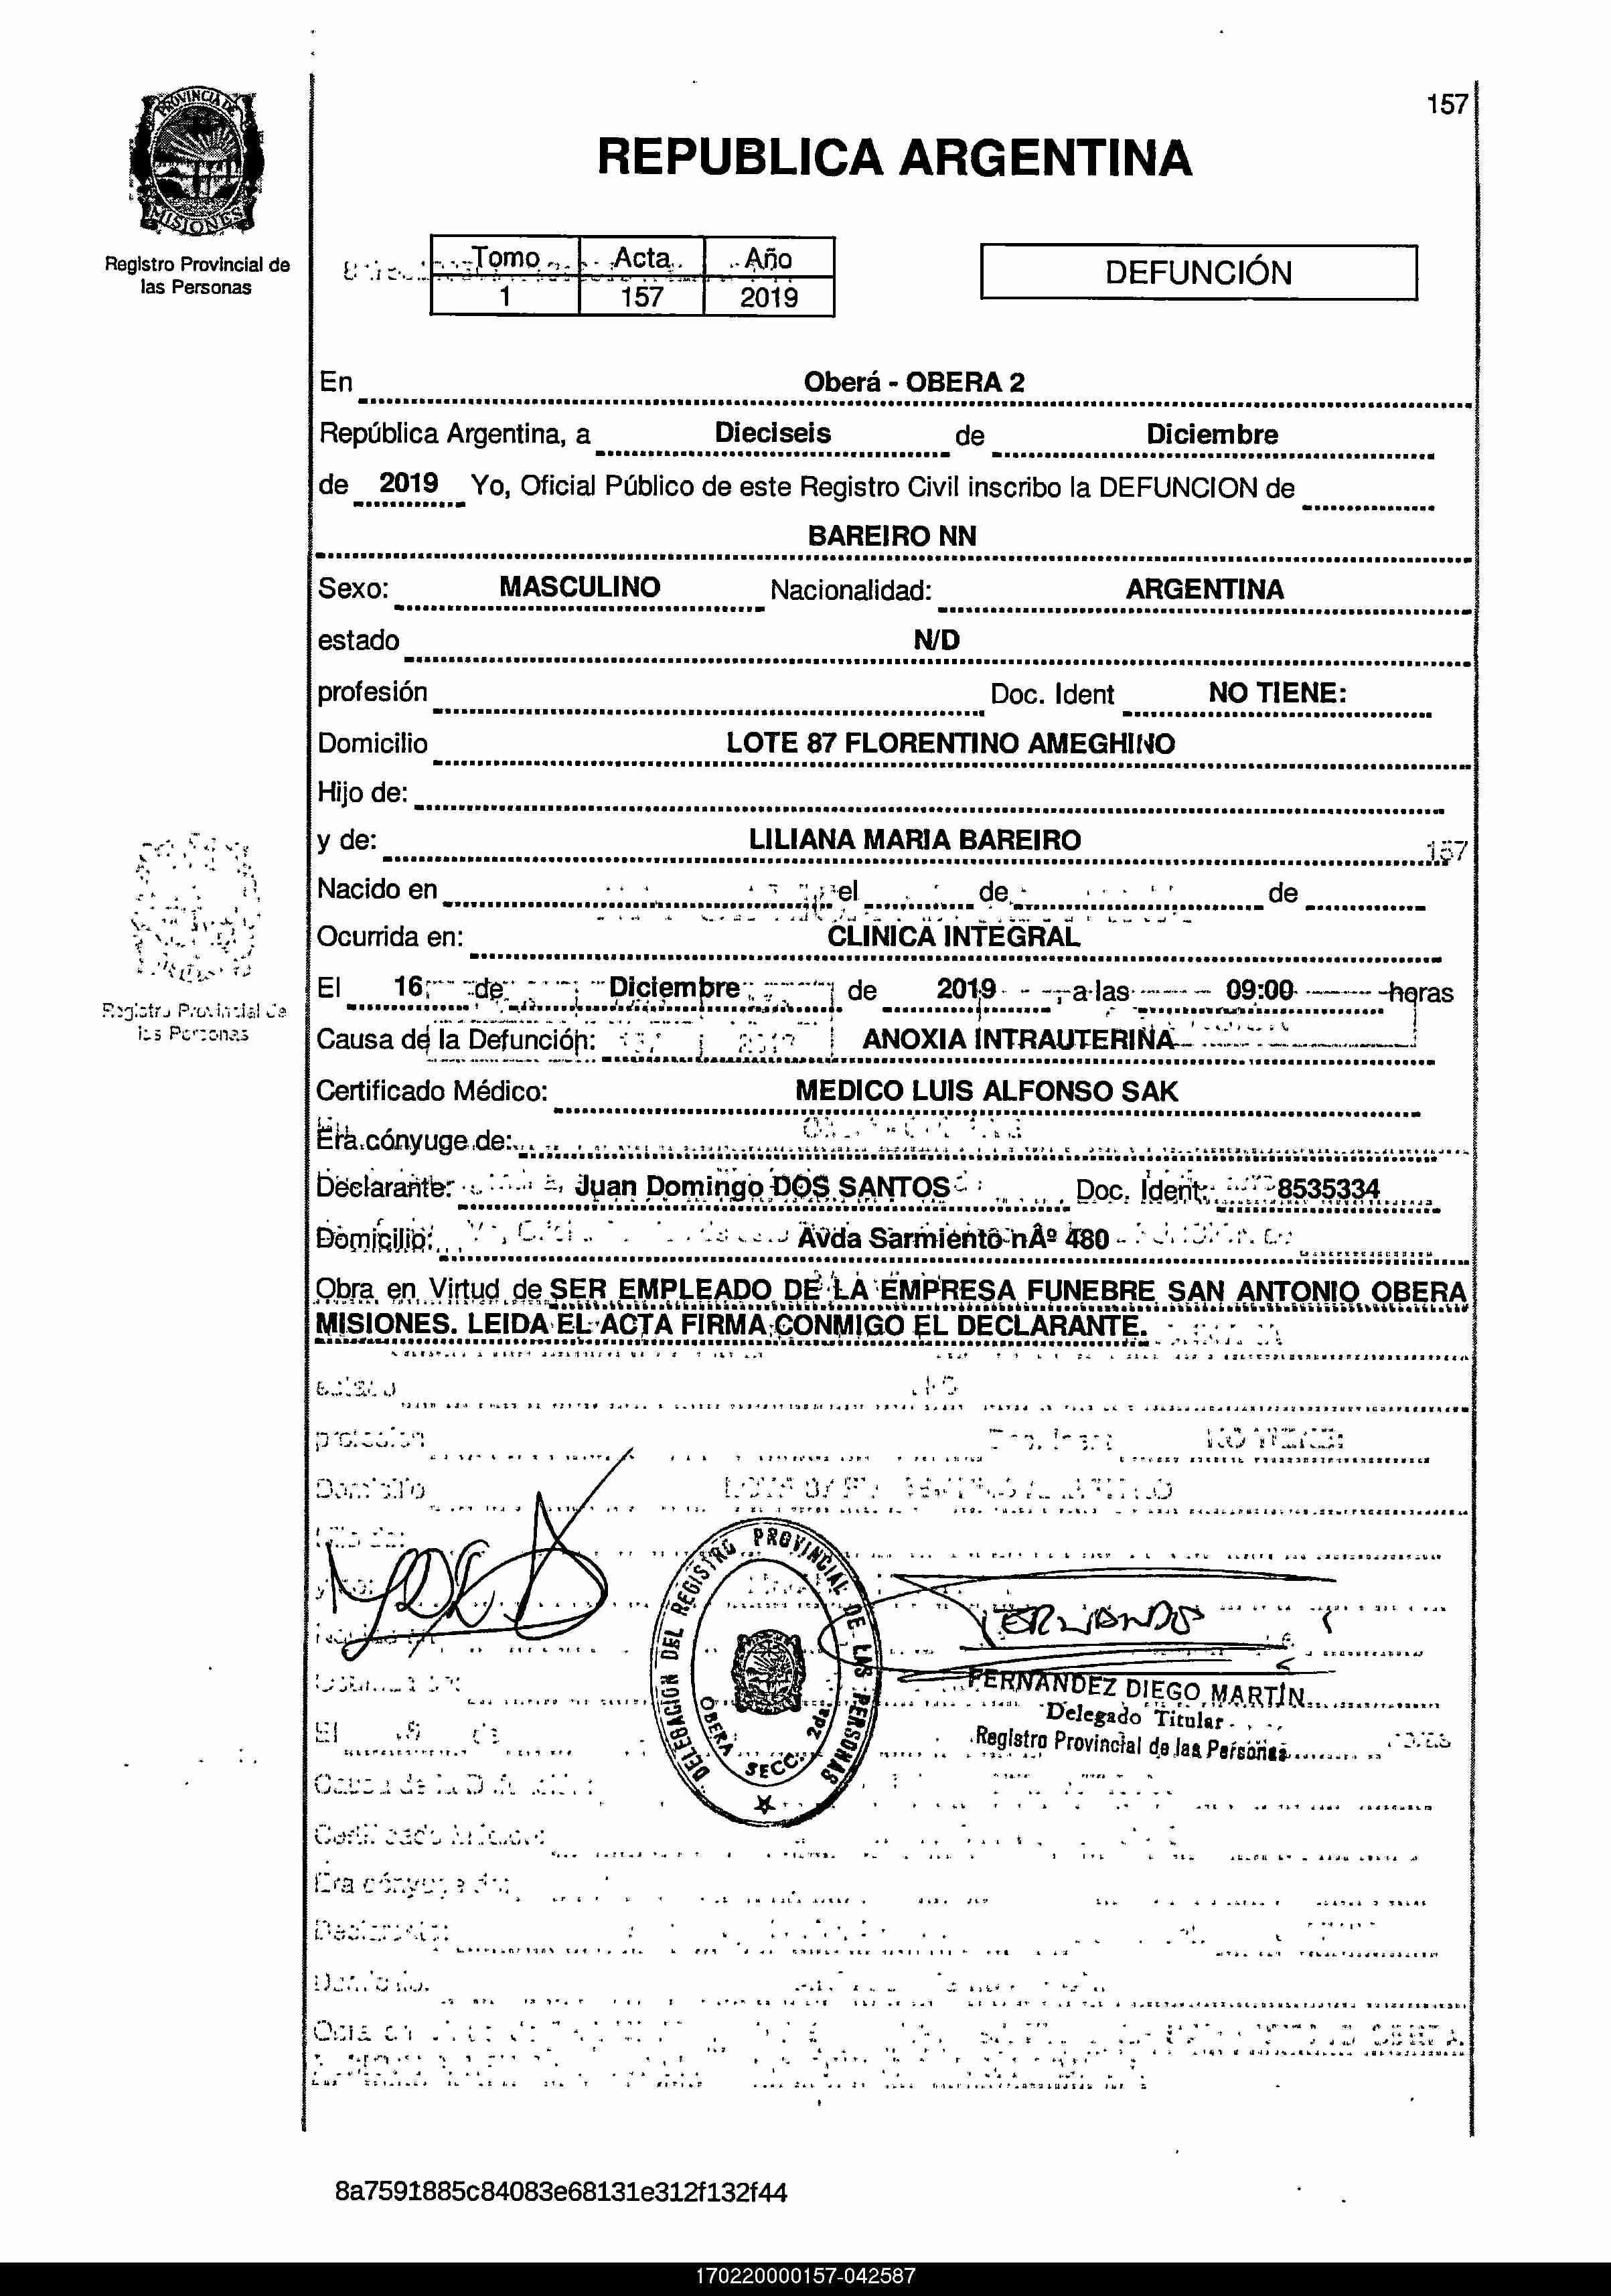 157
PROVINCIA DE
MISIONES
REPUBLICA ARGENTINA
Registro Provincial de
las Personas
Tomo Acta Año
1 157 2019
DEFUNCIÓN
En Oberá - OBERA 2
República Argentina, a Dieciseis de Diciembre
de 2019 Yo, Oficial Público de este Registro Civil inscribo la DEFUNCION de
BAREIRO NN
Sexo: MASCULINO Nacionalidad: ARGENTINA
estado N/D
profesión Doc. Ident NO TIENE:
Domicilio LOTE 87 FLORENTINO AMEGHINO
Hijo de:
y de: LILIANA MARIA BAREIRO
157
Nacido en el de de
Ocurrida en: CLINICA INTEGRAL
El 16 de Diciembre de 2019 a las 09:00 horas
Registro Provincial de
las Personas
Causa de la Defunción: ANOXIA INTRAUTERINA
Certificado Médico: MEDICO LUIS ALFONSO SAK
Era cónyuge de:
Declarante: Juan Domingo DOS SANTOS Doc. Ident: 8535334
Domicilio: Avda Sarmiento nÂº 480
Obra en Virtud de SER EMPLEADO DE LA EMPRESA FUNEBRE SAN ANTONIO OBERA
MISIONES. LEIDA EL ACTA FIRMA CONMIGO EL DECLARANTE.
DELEGACION DEL REGISTRO PROVINCIAL DE LAS PERSONAS
OBERA SECC. 2da.
FERNANDEZ DIEGO MARTÍN
Delegado Titular
Registro Provincial de las Personas
8a7591885c84083e68131e312f132f44
170220000157-042587